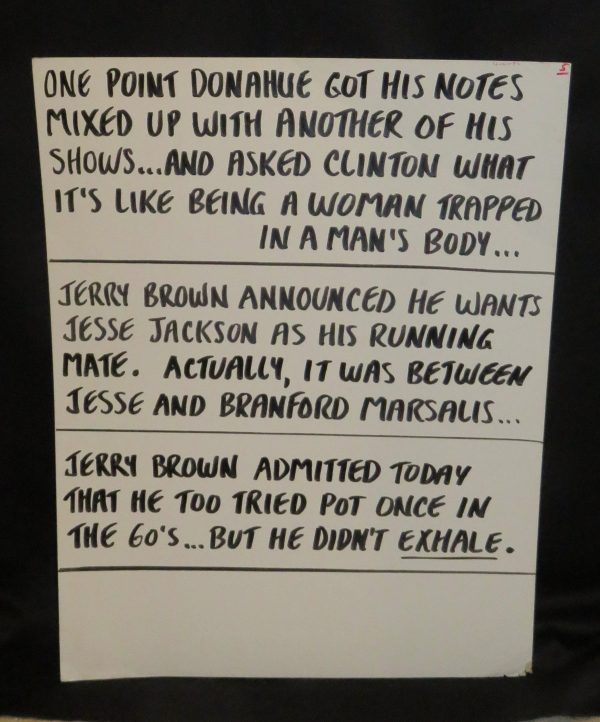 5
ONE POINT DONAHUE GOT HIS NOTES
MIXED UP WITH ANOTHER OF HIS
SHOWS...AND ASKED CLINTON WHAT
IT'S LIKE BEING A WOMAN TRAPPED
IN A MAN'S BODY...
JERRY BROWN ANNOUNCED HE WANTS
JESSE JACKSON AS HIS RUNNING
MATE. ACTUALLY, IT WAS BETWEEN
JESSE AND BRANFORD MARSALIS...
JERRY BROWN ADMITTED TODAY
THAT HE TOO TRIED POT ONCE IN
THE 60'S...BUT HE DIDN'T EXHALE.